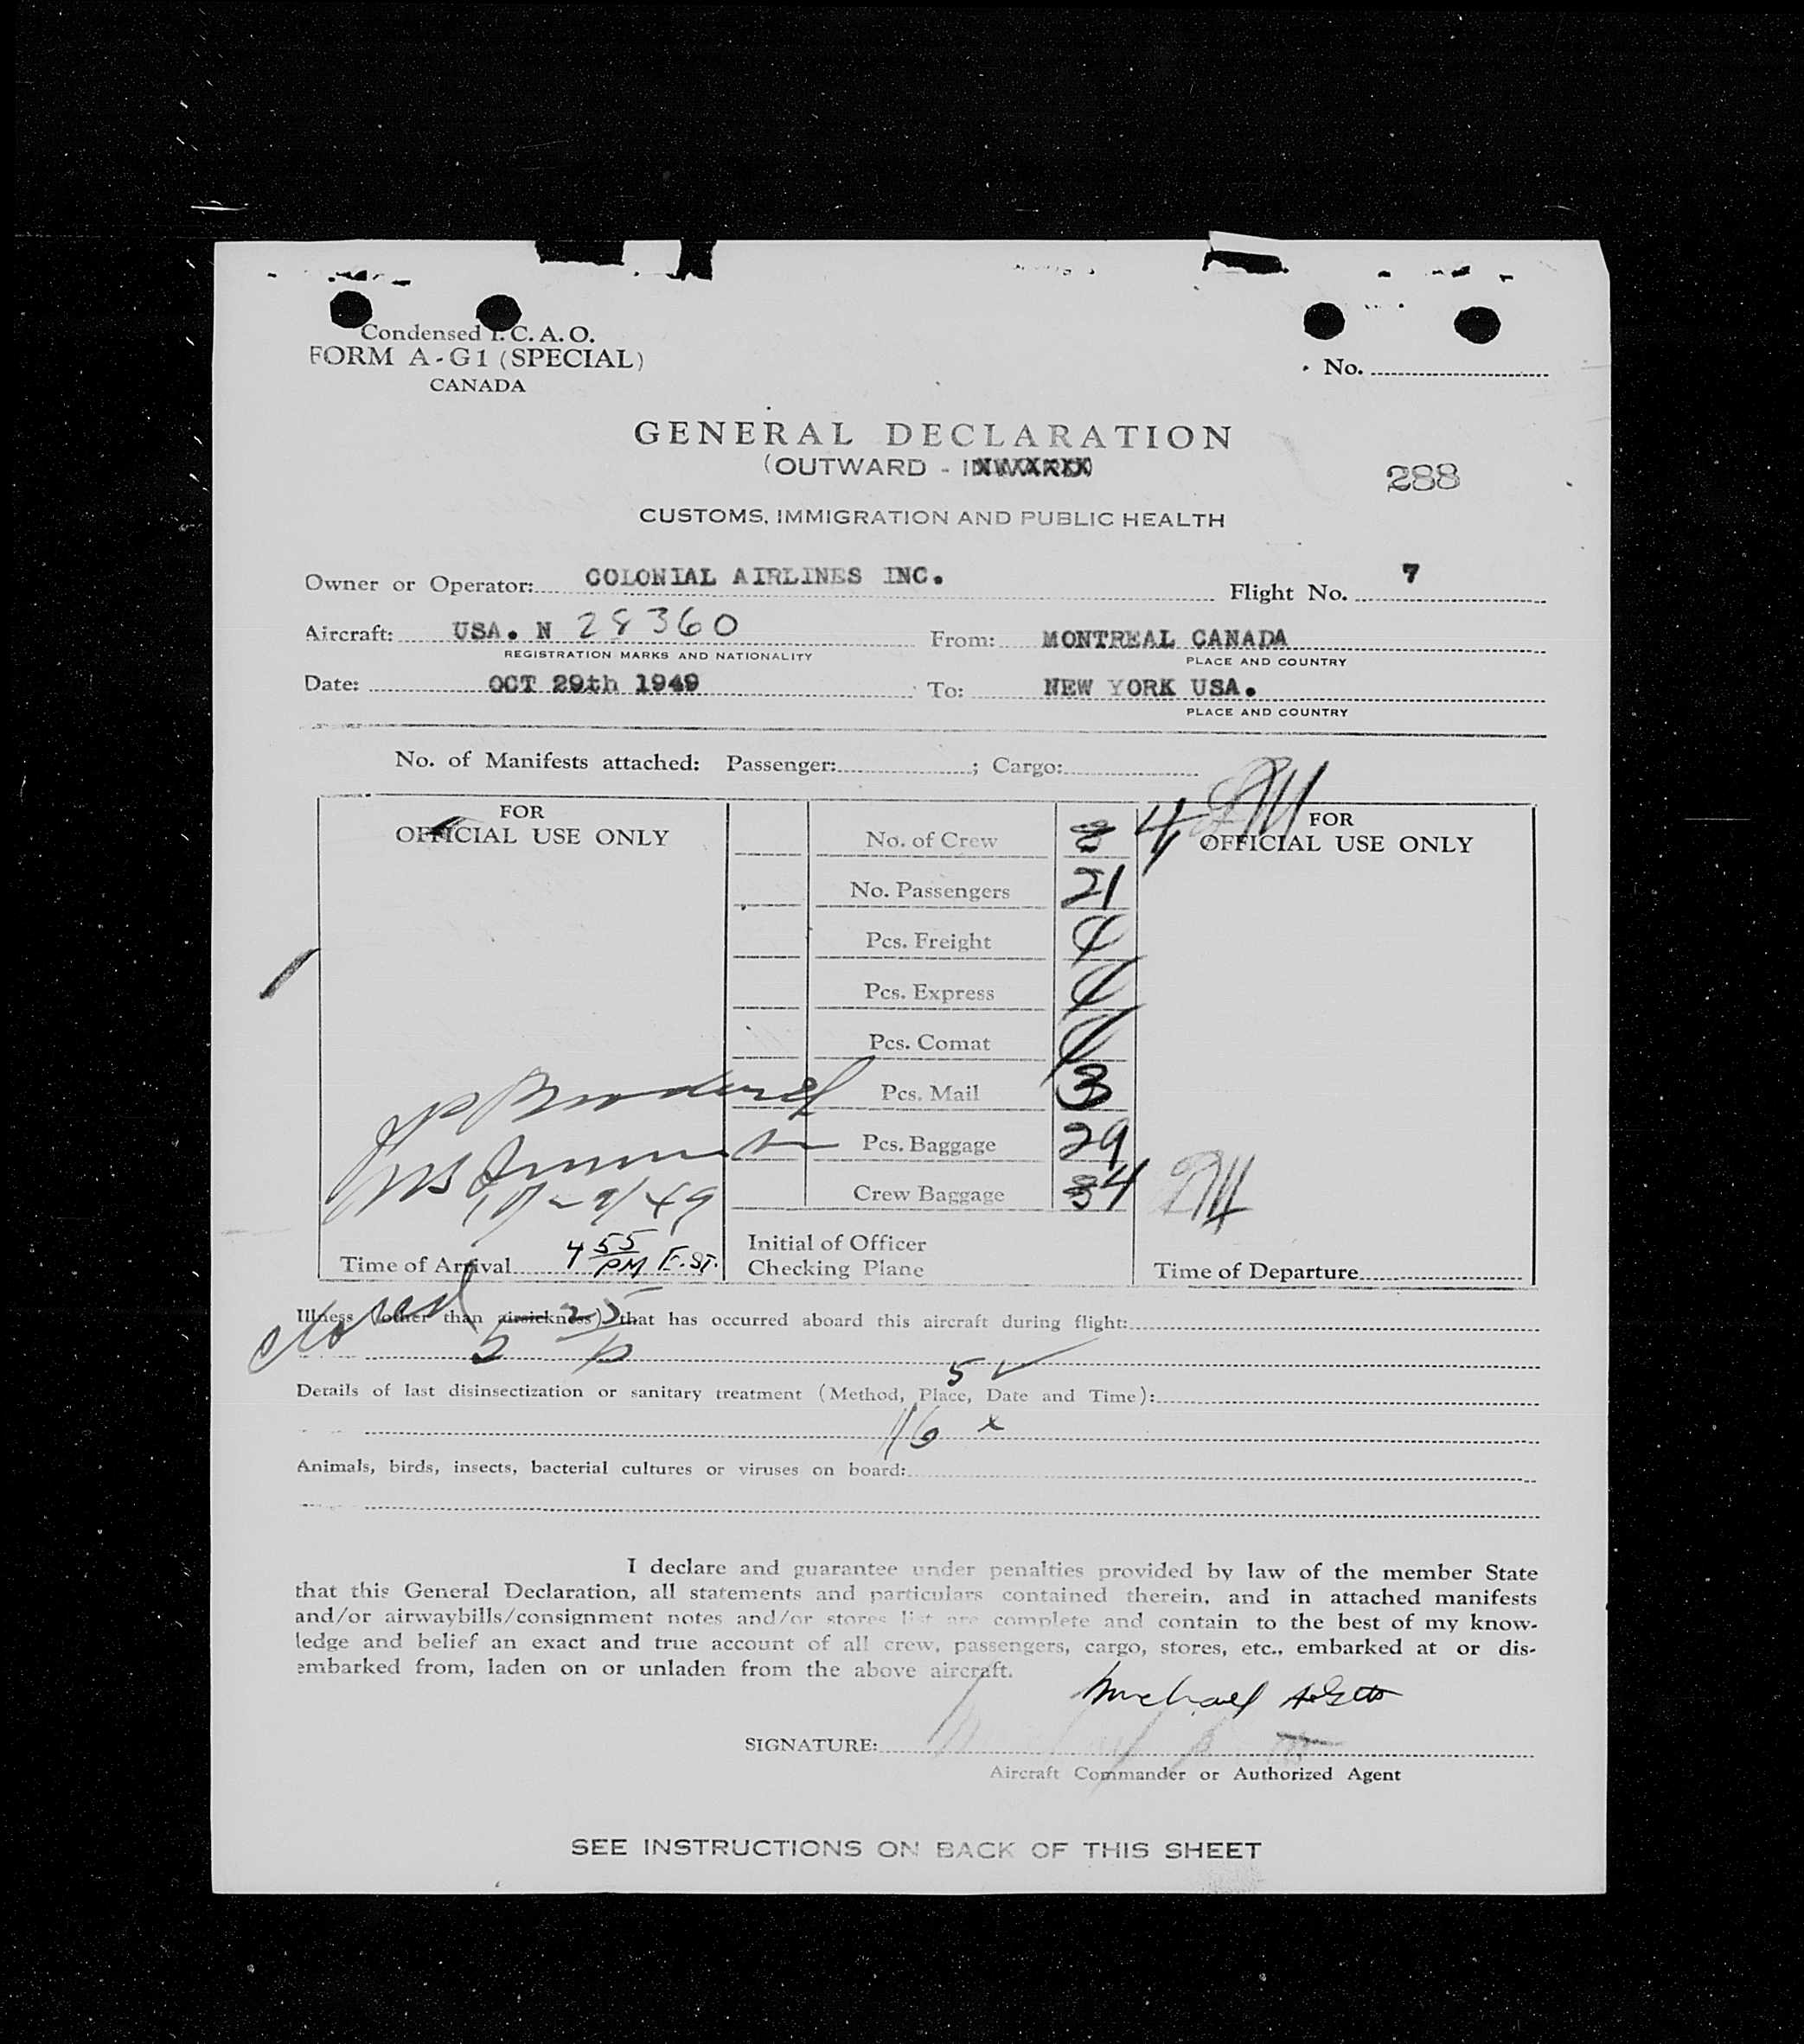 Condensed I.C.A.O.
FORM A-G1 (SPECIAL)
CANADA
No.
GENERAL DECLARATION
(OUTWARD - INWARD)
288
CUSTOMS, IMMIGRATION AND PUBLIC HEALTH
Owner or Operator: COLONIAL AIRLINES INC. Flight No. 7
Aircraft: USA. N 28360 From: MONTREAL CANADA
REGISTRATION MARKS AND NATIONALITY PLACE AND COUNTRY
Date: OCT 29th 1949 To: NEW YORK USA.
PLACE AND COUNTRY
No. of Manifests attached: Passenger: ; Cargo:
FOR
OFFICIAL USE ONLY
No. of Crew 4
FOR
OFFICIAL USE ONLY
No. Passengers 21
Pcs. Freight
Pcs. Express
Pcs. Comat
Pcs. Mail 3
Pcs. Baggage 29
Crew Baggage 4
Time of Arrival 4 55 PM E.ST.
Initial of Officer
Checking Plane
Time of Departure
Illness (other than airsickness) that has occurred aboard this aircraft during flight:
5 ✓
Details of last disinsectization or sanitary treatment (Method, Place, Date and Time):
16 x
Animals, birds, insects, bacterial cultures or viruses on board:
I declare and guarantee under penalties provided by law of the member State
that this General Declaration, all statements and particulars contained therein, and in attached manifests
and/or airwaybills/consignment notes and/or stores list are complete and contain to the best of my know-
ledge and belief an exact and true account of all crew, passengers, cargo, stores, etc., embarked at or dis-
embarked from, laden on or unladen from the above aircraft.
Michael
SIGNATURE:
Aircraft Commander or Authorized Agent
SEE INSTRUCTIONS ON BACK OF THIS SHEET